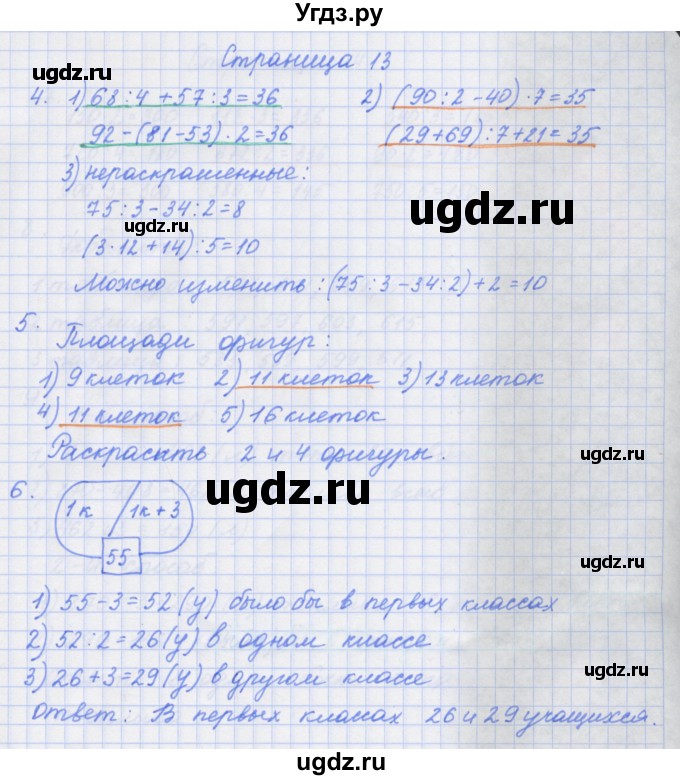 Угдз.ру
Страница 13
4. 1) 68:4+57:3=36 2) (90:2-40)·7=35
92-(81-53)·2=36 (29+69):7+21=35
3) нераскрашенные:
75:3-34:2=8
(3·12+14):5=10
Можно изменить: (75:3-34:2)+2=10
5. Площади фигур:
1) 9 клеток 2) 11 клеток 3) 13 клеток
4) 11 клеток 5) 16 клеток
Раскрасить 2 и 4 фигуры.
6.
1к 1к+3
55
1) 55-3=52(у) было бы в первых классах
2) 52:2=26(у) в одном классе
3) 26+3=29(у) в другом классе
Ответ: В первых классах 26 и 29 учащихся.
ugdz.ru
ugdz.ru
ugdz.ru
ugdz.ru
ugdz.ru
ugdz.ru
ugdz.ru
ugdz.ru
ugdz.ru
ugdz.ru